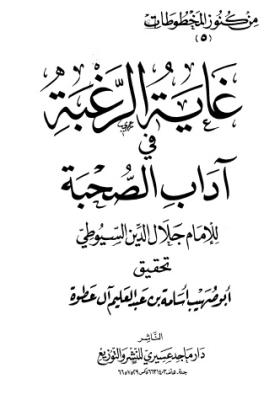 من كنوز المخطوطات
(٥)
غاية الرغبة
في
آداب الصحبة
للإمام جلال الدين السيوطي
تحقيق
أبو صهيب أسامة بن عبد العليم آل عطوة
الناشر
دار ماجد عسيري للنشر والتوزيع